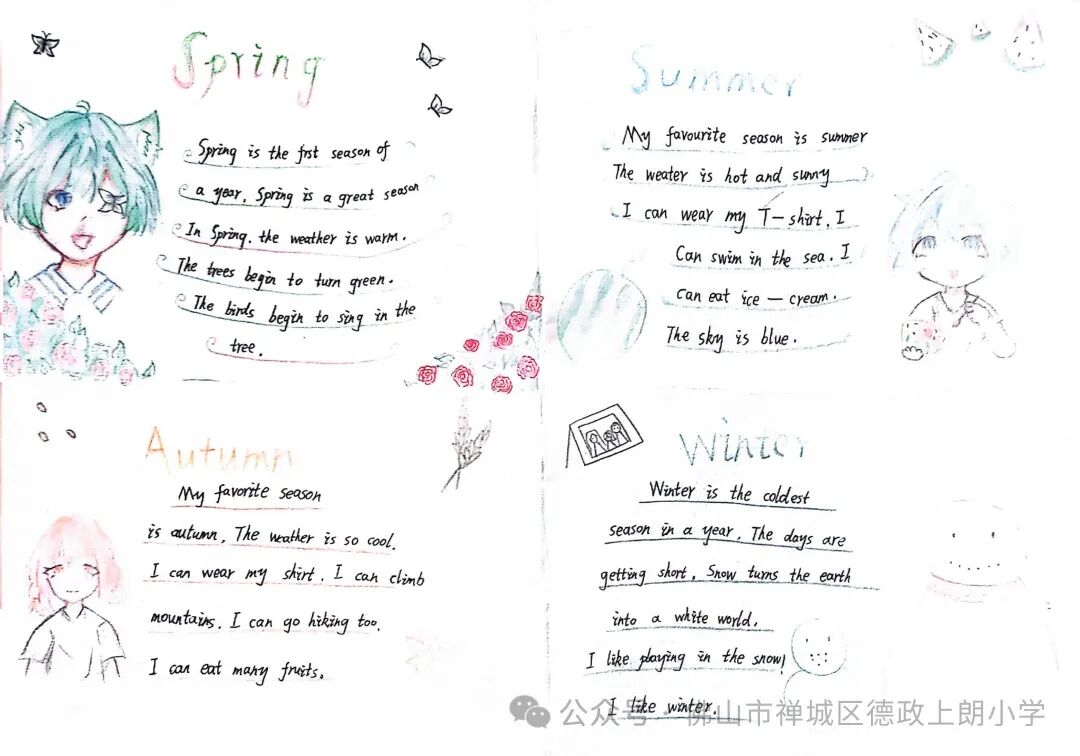 Spring
Spring is the frst season of
a year. Spring is a great season
In Spring. the weather is warm.
The trees begin to turn green.
The birds begin to sing in the
tree.
Summer
My favourite season is summer
The weater is hot and sunny
I can wear my T-shirt. I
Can swim in the sea. I
can eat ice-cream.
The sky is blue.
Autumn
My favorite season
is autumn. The weather is so cool.
I can wear my shirt. I can climb
mountains. I can go hiking too.
I can eat many fruits.
Winter
Winter is the coldest
season in a year. The days are
getting short. Snow turns the earth
into a white world.
I like playing in the snow!
I like winter.
公众号·佛山市禅城区德政上朗小学